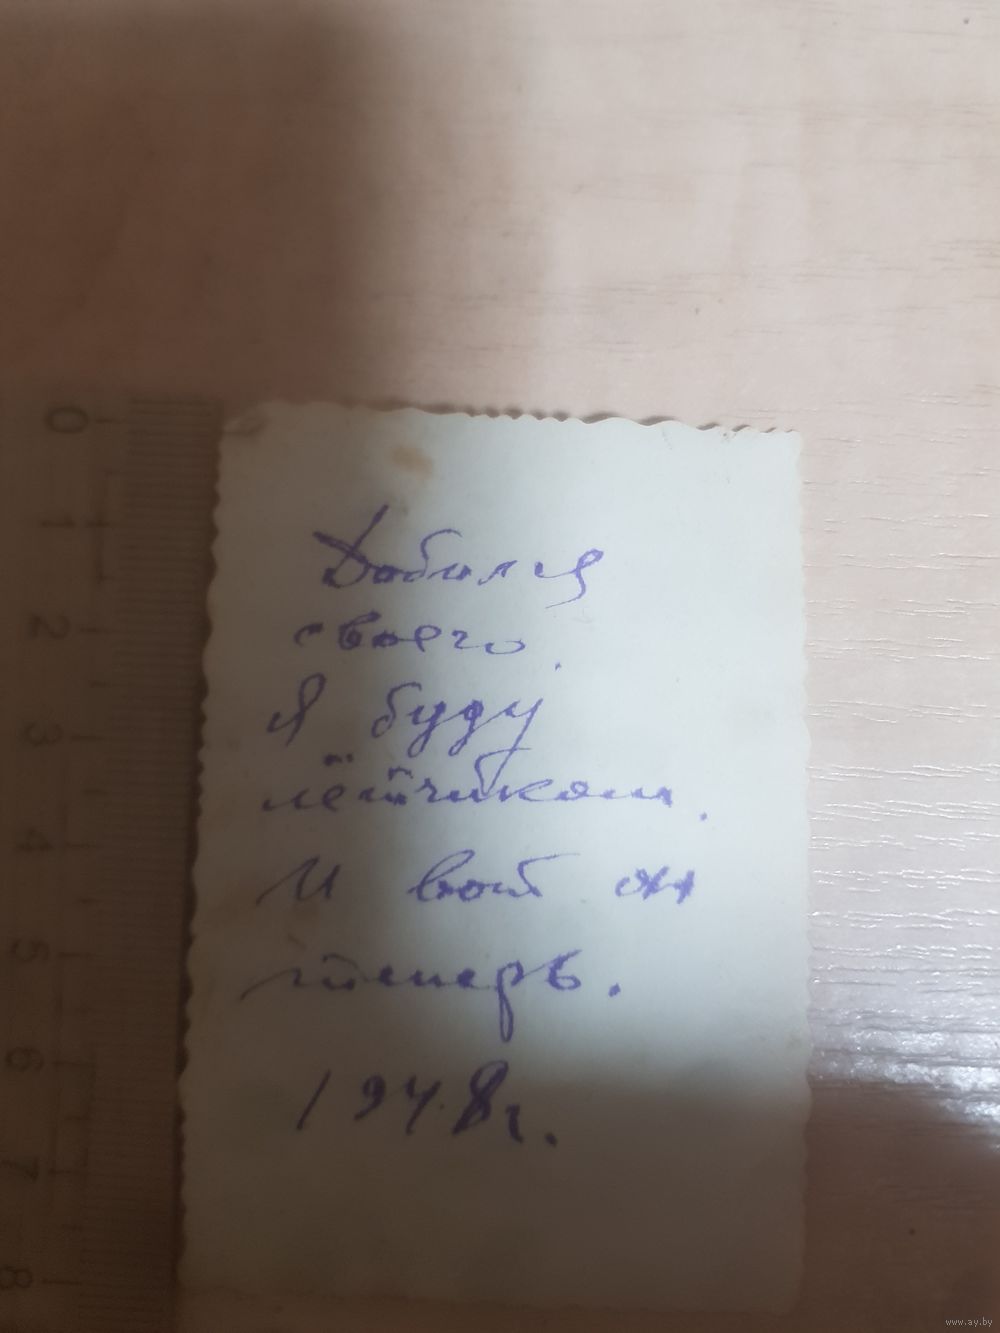 Добился
своего.
Я буду
лётчиком.
И вот он
теперь.
1948г.
0
1
2
3
4
5
6
7
8
www.ay.by